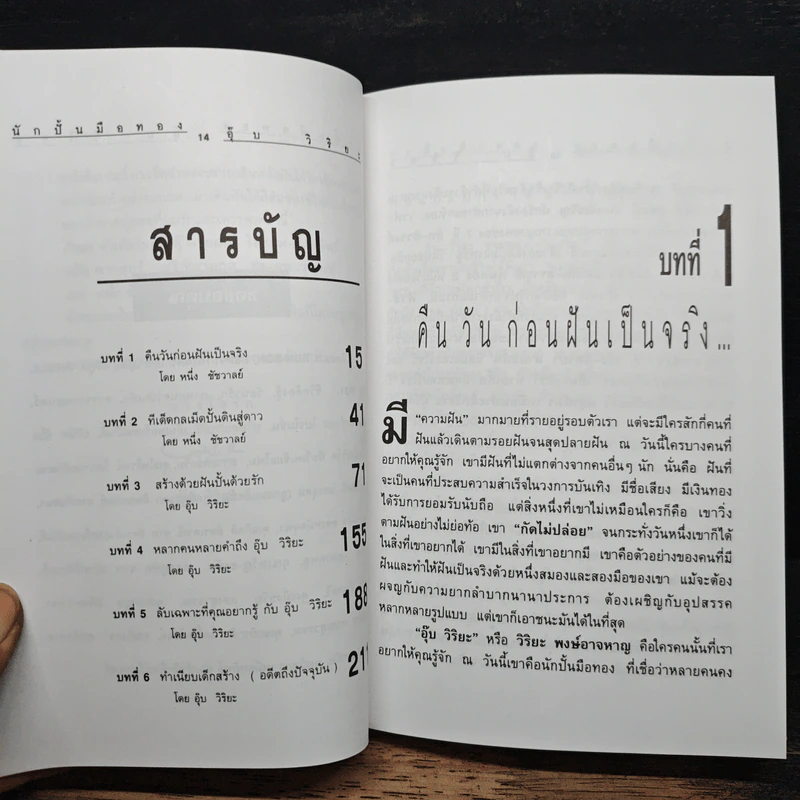 นักปั้นมือทอง 14 อุ๊บ วิริยะ
สารบัญ
บทที่ 1 คืนวันก่อนฝันเป็นจริง 15
โดย หนึ่ง ชัชวาลย์
บทที่ 2 ทีเด็ดกลเม็ดปั้นดินสู่ดาว 41
โดย หนึ่ง ชัชวาลย์
บทที่ 3 สร้างด้วยฝันปั้นด้วยรัก 71
โดย อุ๊บ วิริยะ
บทที่ 4 หลากคนหลายคำถึง อุ๊บ วิริยะ 155
โดย อุ๊บ วิริยะ
บทที่ 5 ลับเฉพาะที่คุณอยากรู้ กับ อุ๊บ วิริยะ 188
โดย อุ๊บ วิริยะ
บทที่ 6 ทำเนียบเด็กสร้าง ( อดีตถึงปัจจุบัน )
โดย อุ๊บ วิริยะ
บทที่ 1
คืนวันก่อนฝันเป็นจริง...
มี "ความฝัน" มากมายที่รายอยู่รอบตัวเรา แต่จะมีใครสักกี่คนที่
ฝันแล้วเดินตามรอยฝันจนสุดปลายฝัน ณ วันนี้ใครบางคนที่
อยากให้คุณรู้จัก เขามีฝันที่ไม่แตกต่างจากคนอื่นๆ นัก นั่นคือ ฝันที่
จะเป็นคนที่ประสบความสำเร็จในวงการบันเทิง มีชื่อเสียง มีเงินทอง
ได้รับการยอมรับนับถือ แต่สิ่งหนึ่งที่เขาไม่เหมือนใครก็คือ เขาวิ่ง
ตามฝันอย่างไม่ย่อท้อ เขา "กัดไม่ปล่อย" จนกระทั่งวันหนึ่งเขาก็ได้
ในสิ่งที่เขาอยากได้ เขามีในสิ่งที่เขาอยากมี เขาคือตัวอย่างของคนที่มี
ฝันและทำให้ฝันเป็นจริงด้วยหนึ่งสมองและสองมือของเขา แม้จะต้อง
ผจญกับความยากลำบากนานาประการ ต้องเผชิญกับอุปสรรค
หลากหลายรูปแบบ แต่เขาก็เอาชนะมันได้ในที่สุด
"อุ๊บ วิริยะ" หรือ วิริยะ พงษ์อาจหาญ คือใครคนนั้นที่เรา
อยากให้คุณรู้จัก ณ วันนี้เขาคือนักปั้นมือทอง ที่เชื่อว่าหลายคนคง